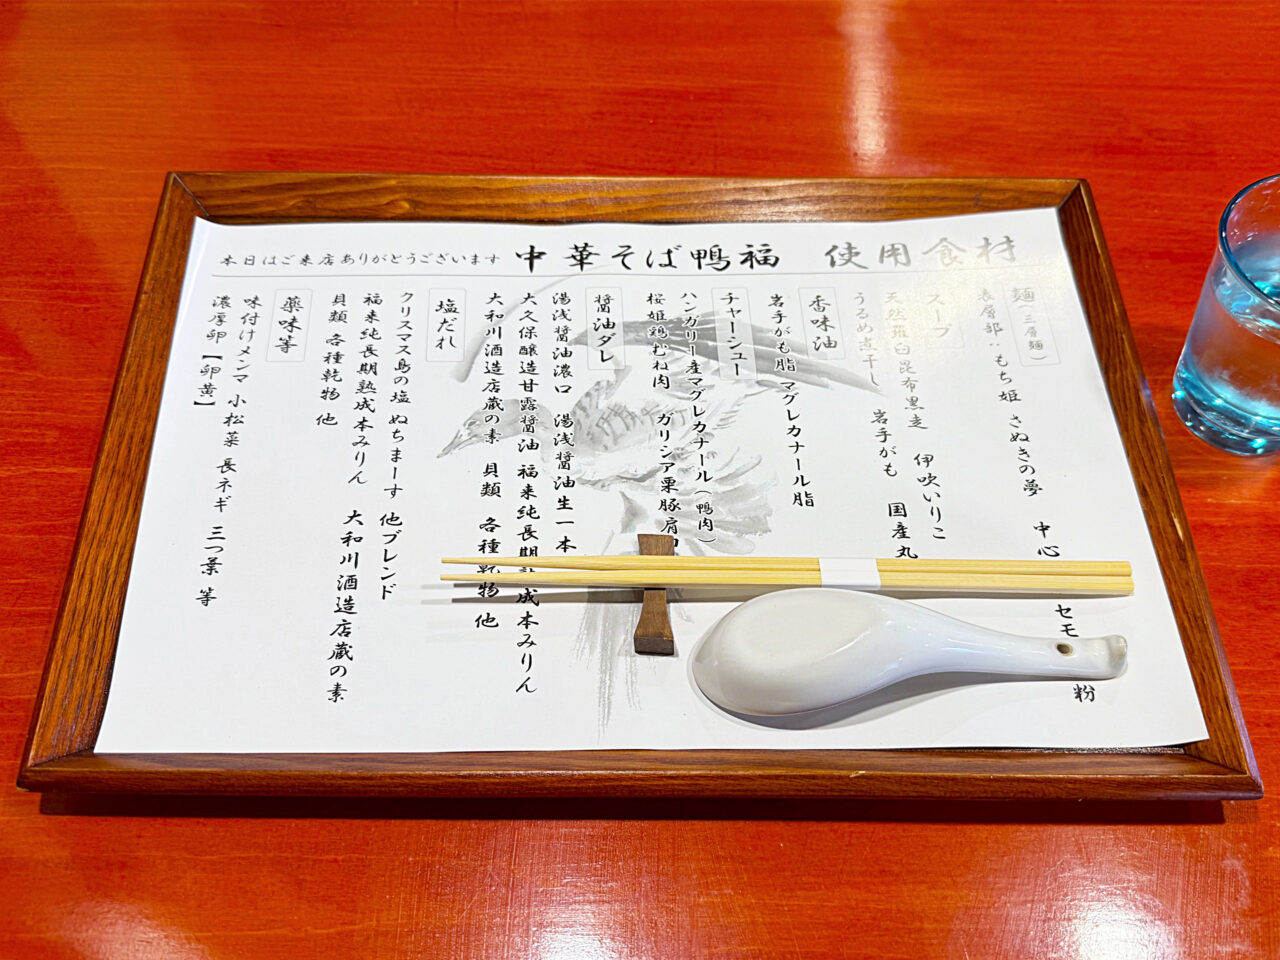 本日はご来店ありがとうございます 中華そば鴨福 使用食材
麺(三層麺)
表層部:もち姫 さぬきの夢 中心 セモ 粉
スープ
天然羅臼昆布黒走 伊吹いりこ
うるめ煮干し 岩手がも 国産丸
香味油
岩手がも脂 マグレカナール脂
チャーシュー
ハンガリー産マグレカナール(鴨肉)
桜姫鶏むね肉 ガリシア栗豚肩
醤油ダレ
湯浅醤油濃口 湯浅醤油生一本
大久保醸造甘露醤油 福来純長期熟成本みりん
大和川酒造店蔵の素 貝類 各種乾物 他
塩だれ
クリスマス島の塩 ぬちまーす 他ブレンド
福来純長期熟成本みりん 大和川酒造店蔵の素
貝類 各種乾物 他
薬味等
味付けメンマ 小松菜 長ネギ 三つ葉 等
濃厚卵【卵黄】